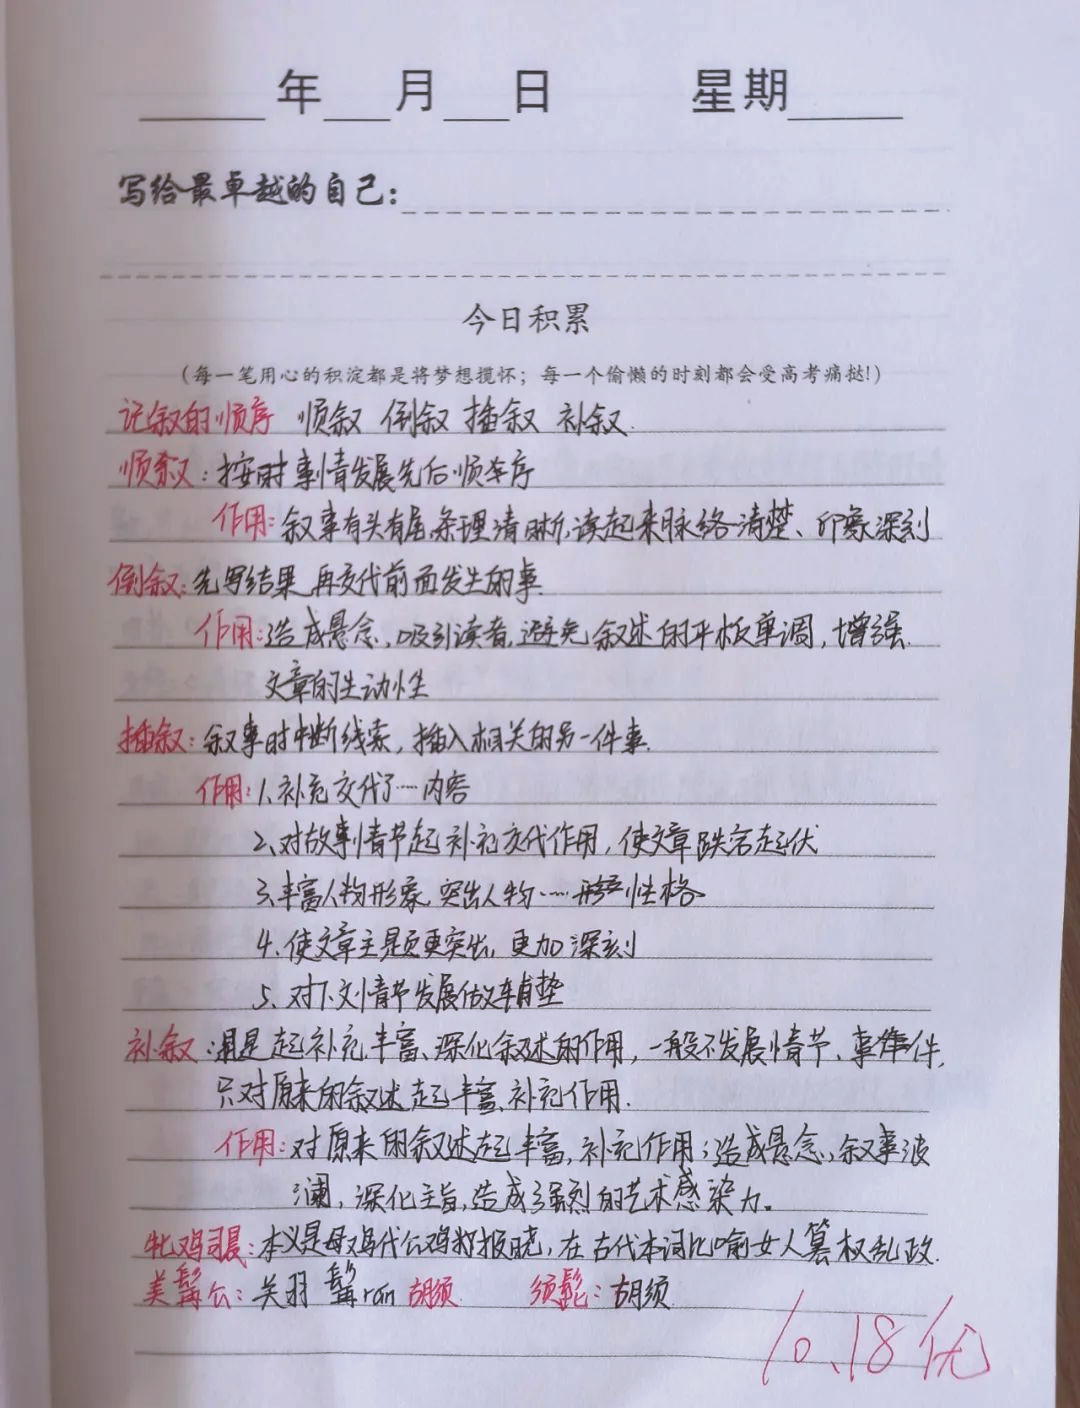 ____年___月___日 星期____
写给最卓越的自己:
今日积累
(每一笔用心的积淀都是将梦想揽怀；每一个偷懒的时刻都会受高考痛挞!)
记叙的顺序 顺叙 倒叙 插叙 补叙.
顺叙：按时事情发展先后顺序
作用：叙事有头有尾,条理清晰,读起来脉络清楚、印象深刻
倒叙：先写结果,再交代前面发生的事.
作用：造成悬念,吸引读者,避免叙述的平板单调,增强
文章的生动性
插叙：叙事时中断线索,插入相关的另一件事.
作用：1.补充交代了…内容
2.对故事情节起补充交代作用,使文章跌宕起伏
3.丰富人物形象,突出人物……性格
4.使文章主题更突出,更加深刻
5.对下文情节发展做铺垫
补叙：是起补充、丰富、深化叙述的作用,一般不发展情节、事件,
只对原来的叙述起丰富、补充作用.
作用：对原来的叙述起丰富,补充作用;造成悬念,叙事波
澜,深化主旨,造成强烈的艺术感染力。
牝鸡司晨：本义是母鸡代公鸡报晓,在古代本词比喻女人篡权乱政.
美髯公：关羽 髯rán 胡须 须髭：胡须
10.18 优